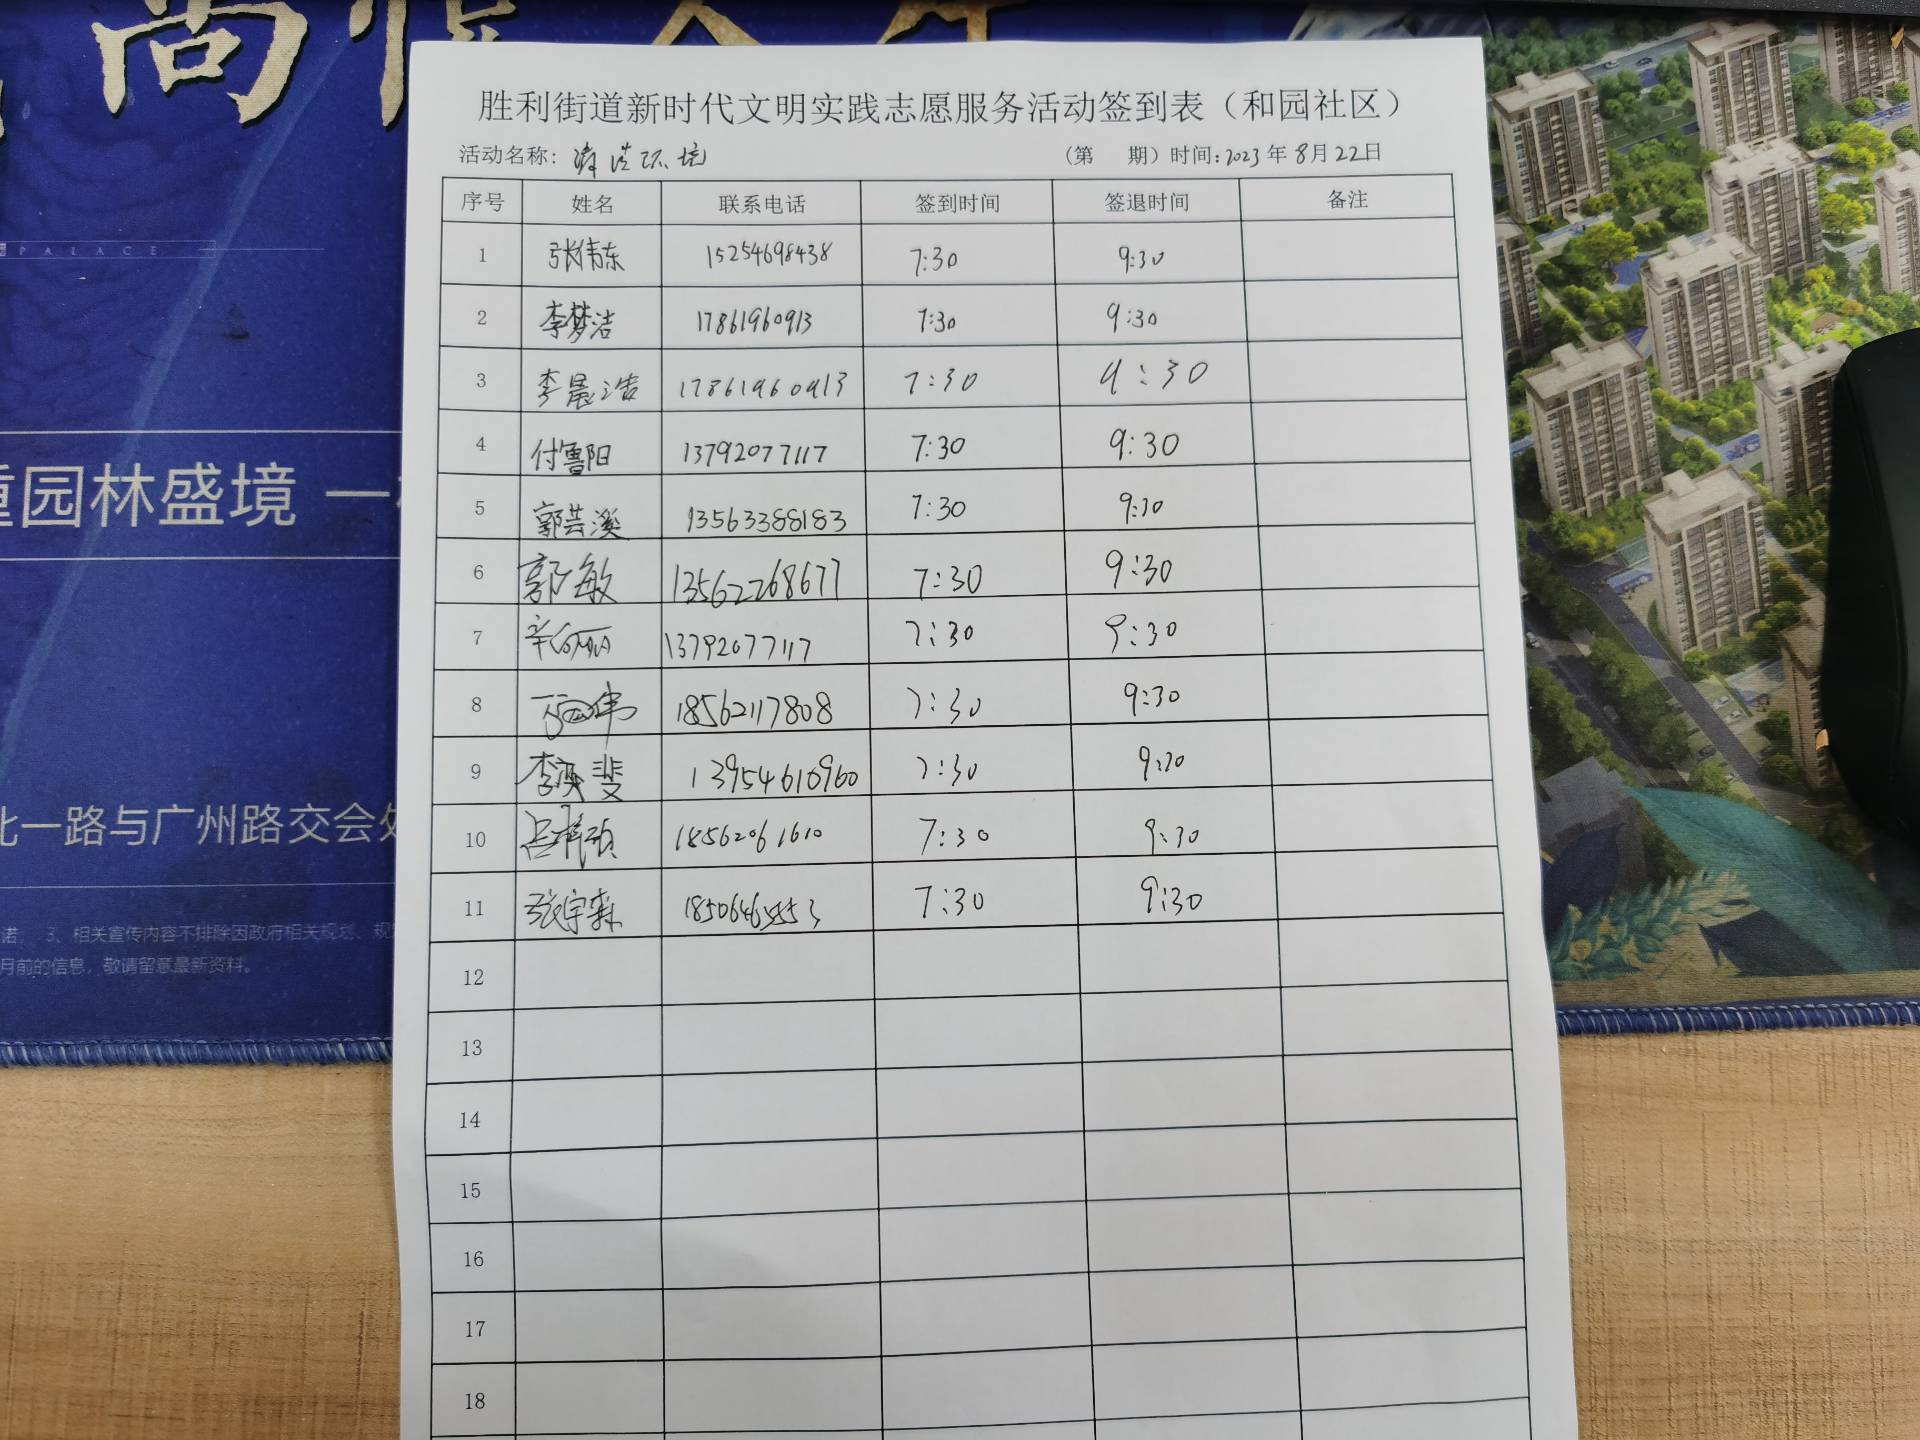 尚
PALACE
重园林盛境 一
北一路与广州路交会处
诺; 3、相关宣传内容不排除因政府相关规划、规
月前的信息，敬请留意最新资料。
胜利街道新时代文明实践志愿服务活动签到表（和园社区）
活动名称：清洁环境 (第 期）时间：2023年8月22日
序号 姓名 联系电话 签到时间 签退时间 备注
1 张伟东 15254698438 7:30 9:30
2 李梦洁 17861960913 7:30 9:30
3 李晨浩 17861960913 7:30 9:30
4 付鲁阳 13792077117 7:30 9:30
5 郭芸溪 13563388183 7:30 9:30
6 郭敏 13562268677 7:30 9:30
7 13792077117 7:30 9:30
8 18562117808 7:30 9:30
9 李英斐 13954610960 7:30 9:30
10 18562061610 7:30 9:30
11 张宇森 7:30 9:30
12
13
14
15
16
17
18